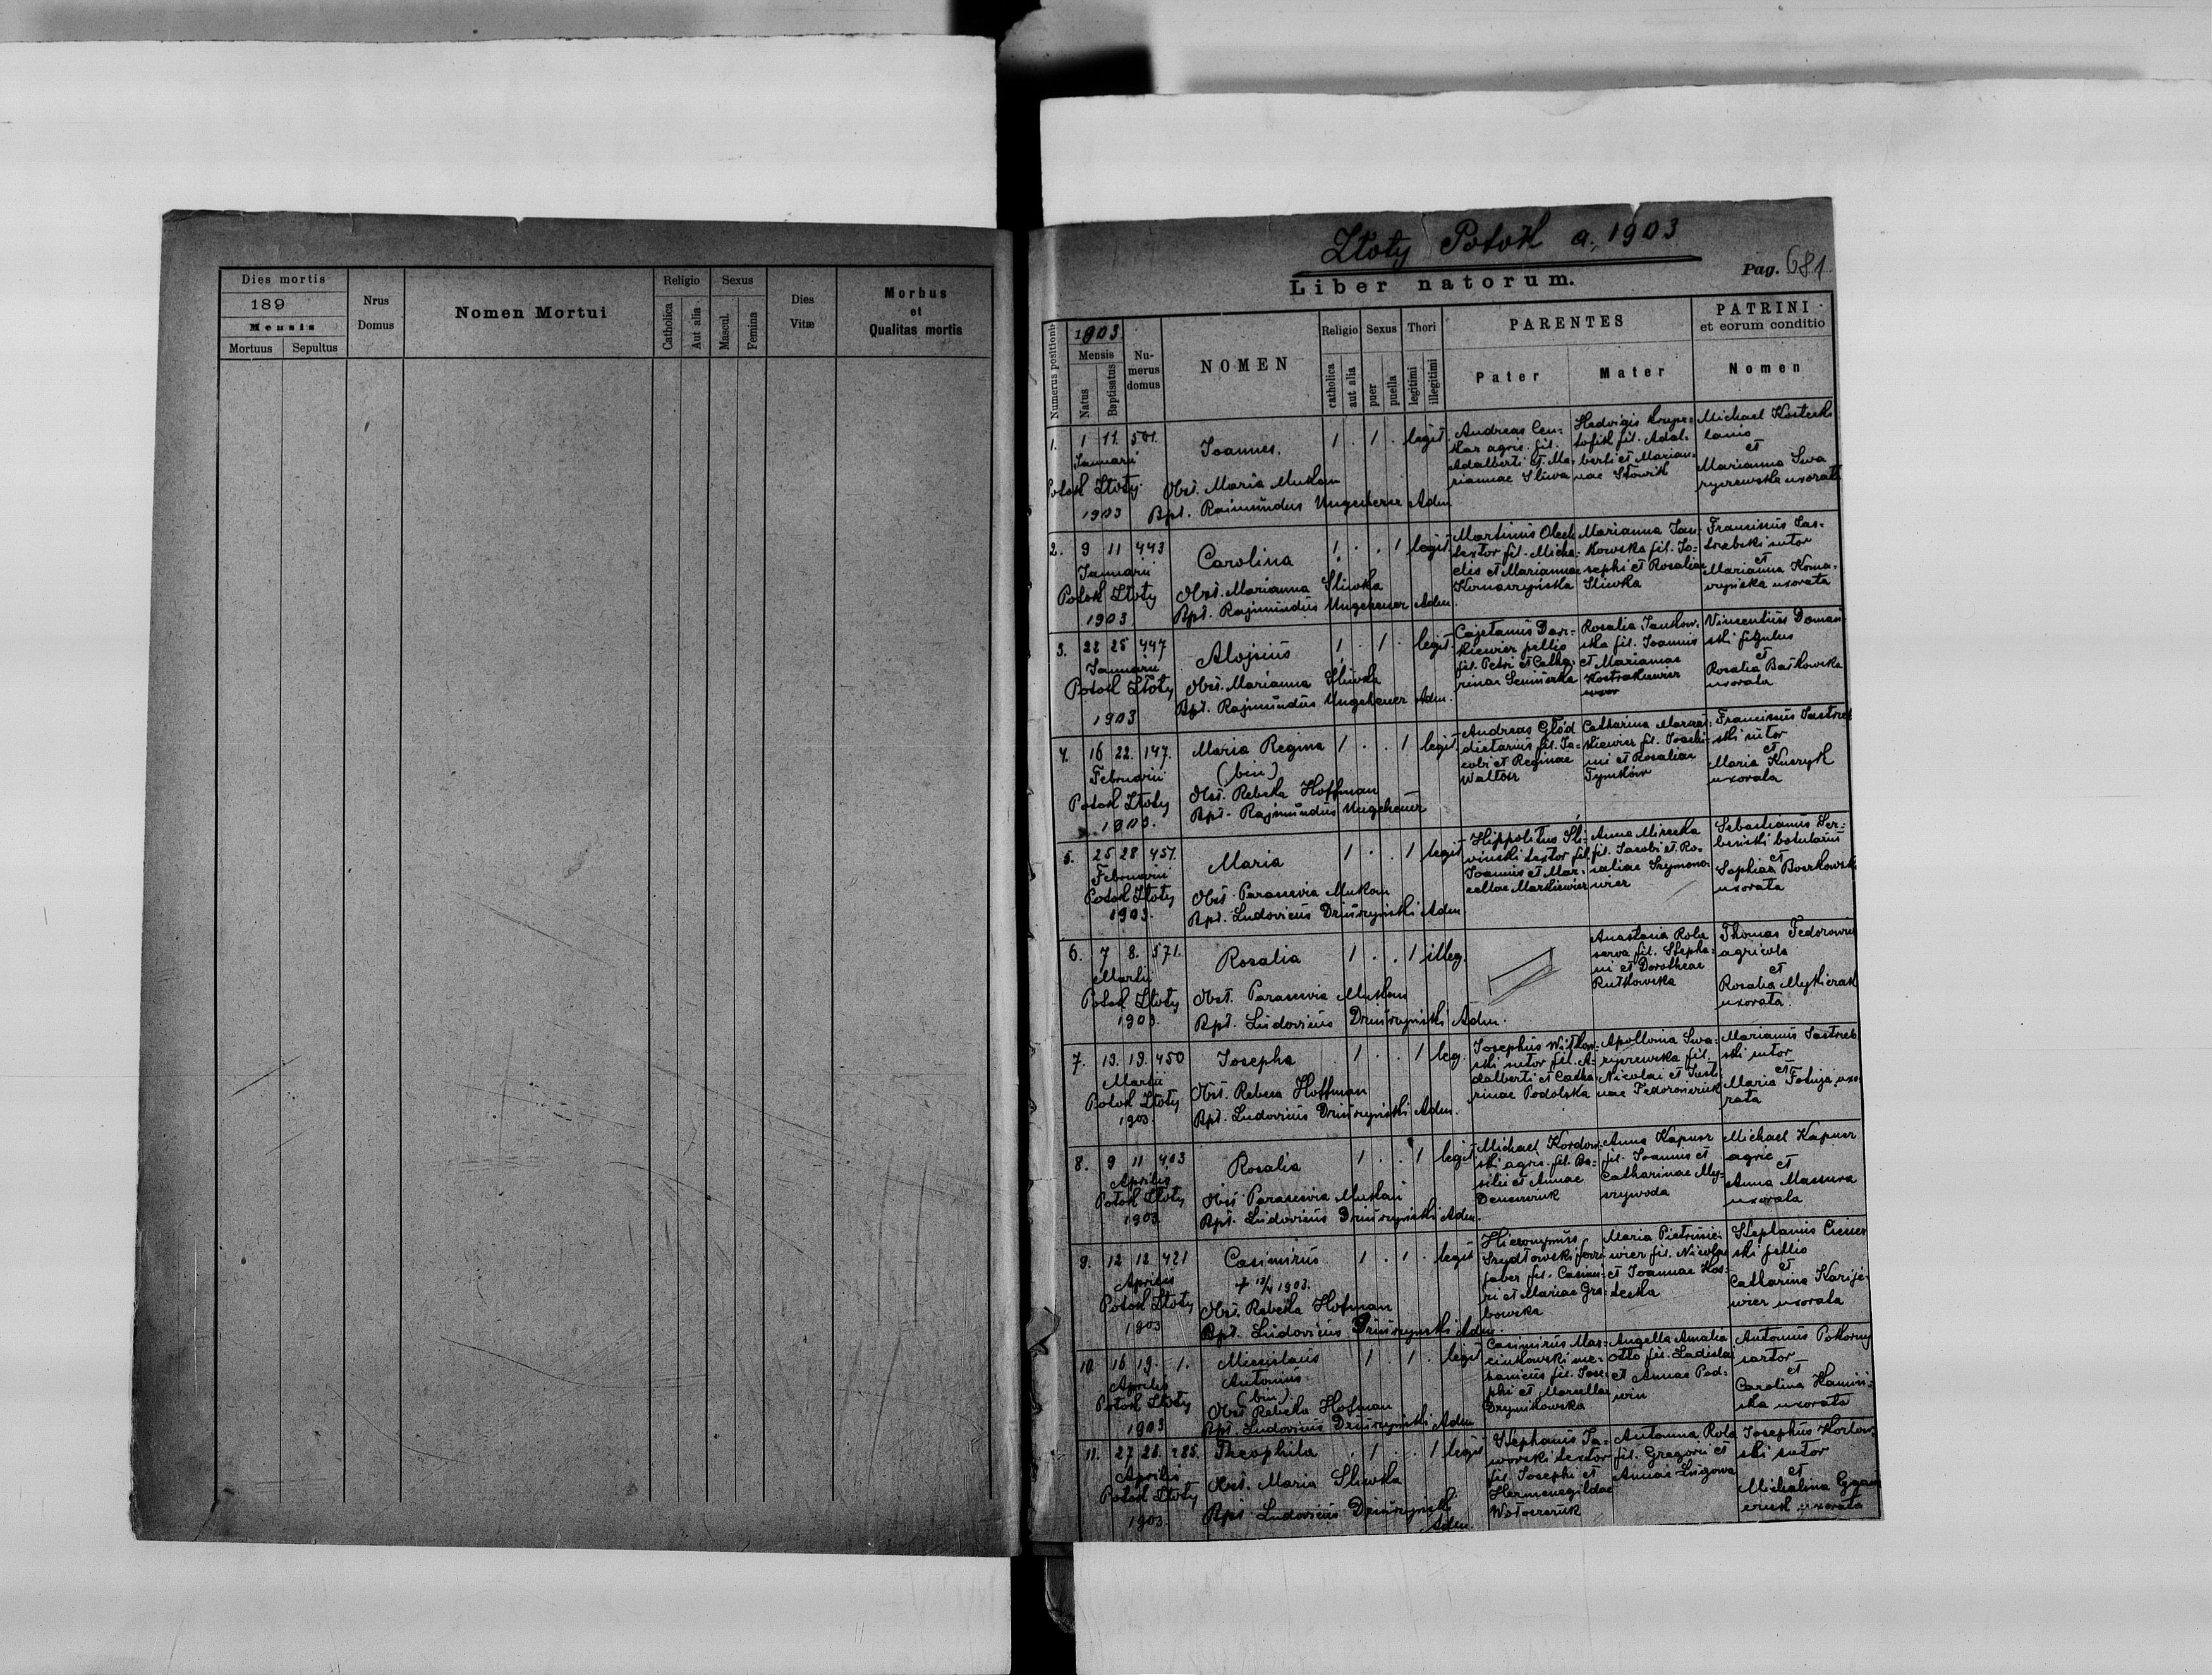 Dies mortis
189
Mensis
Mortuus Sepultus
Nrus
Domus
Nomen Mortui
Religio
Catholica
Aut alia
Sexus
Mascul.
Femina
Dies
Vitæ
Morbus
et
Qualitas mortis
Złoty Potok a. 1903
Pag. 681
Liber natorum.
Numerus positionis
1903.
Mensis
Natus
Baptisatus
Nu-
merus
domus
NOMEN
Religio
catholica
aut alia
Sexus
puer
puella
Thori
legitimi
illegitimi
PARENTES
Pater
Mater
PATRINI
et eorum conditio
Nomen
1. 1 11. 501.
Januarii
Potok Złoty
1903
Joannes.
Obst. Maria Mukan
Bpt. Raimundus Ungeheuer Adm
1 . 1 . legit.
Andreas Cen-
kar agric. fil.
Adalberti et Ma-
riannae Sliwa
Hedvigis
fil. Adal-
berti et Marian-
nae Słowik
Michael
et
Marianna Swa
ryczewska uxorata
2. 9 11 443
Januarii
Potok Złoty
1903
Carolina
Obst. Marianna Sliwka
Bpt. Rajmundus Ungeheuer Adm.
1 . . 1 legit.
Martinus Olech
textor fil. Micha-
elis et Mariannae
Komarzyńska
Marianna Jan-
kowska fil. Jo-
sephi et Rosaliae
Sliwka
Franciscus Jas-
trzebski sutor
et
Marianna Koma-
rzyńska uxorata
3. 22 25 447
Januarii
Potok Złoty
1903
Alojsius
Obst. Marianna Sliwka
Bpt. Rajmundus Ungeheuer Adm.
1 . 1 . legit.
Cajetanus Dar-
kiewicz pellio
fil. Petri et Catha-
rinae
Rosalia Jankow-
ska fil. Joannis
et Mariannae
Kostrakiewicz
Vincentius Doman-
ski figulus
et
Rosalia Bańkowska
uxorata
4. 16 22. 147.
Februarii
Potok Złoty
1903.
Maria Regina
(bin)
Obst. Rebeka Hoffman
Bpt. Rajmundus Ungeheuer
1 . . 1 legit.
Andreas Głód
dietarius fil. Ja-
cobi et Reginae
Waltoś
Catharina Marcin-
kiewicz fil. Joachi-
mi et Rosaliae
Tymków
Franciscus Jastrzeb
ski sutor
et
Maria Kuszyk
uxorata
5. 25 28 451.
Februarii
Potok Złoty
1903.
Maria
Obst. Parascevia Mukan
Bpt. Ludovicus Dziurzyński Adm
1 . . 1 legit
Hippolitus Sli-
winski textor fil.
Joannis et Mar-
cellae Markiewicz
Anna Mirecka
fil. Jacobi et Ro-
saliae Szymono-
wicz
Sebastianus Ser-
benski botularius
et
Sophia Boczkowska
uxorata
6. 7 8. 571.
Martii
Potok Złoty
1903.
Rosalia
Obst. Parascevia Mukan
Bpt. Ludovicus Dziurzyński Adm.
1 . . 1 illeg.
Anastasia Rola
serva fil. Stepha-
ni et Dorotheae
Rutkowska
Thomas Fedorowicz
agricola
et
Rosalia Mykierak
uxorata.
7. 13. 19. 450
Martii
Potok Złoty
1903.
Josepha
Obst. Rebeca Hoffman
Bpt. Ludovicus Dziurzyński Adm.
1 . . 1 leg.
Josephus Witkow-
ski sutor fil. A-
dalberti et Catha-
rinae Podolska
Apollonia Swa-
ryczewska fil.
Nicolai et Justi-
nae Fedorowicz
Marianus Jastrzeb
ski sutor
et
Maria Fotuja uxo-
rata
8. 9 11 403
Aprilis
Potok Złoty
1903
Rosalia
Obst. Parascevia Mukan
Bpt. Ludovicus Dziurzyński Adm.
1 . . 1 legit.
Michael Kordow-
ski agric. fil. Ba-
silii et Annae
Anna Kapusz
fil. Joannis et
Catharinae
Michael Kapusz
agric
et
Anna Massura
uxorata
9. 12 12 421
Aprilis
Potok Złoty
1903
Casimirus
+ 13/4 1903.
Obst. Rebeka Hofman
Bpt. Ludovicus Dziurzyński Adm.
1 . 1 . legit
Hieronymus
Szydłowski ferri
faber fil. Casimi-
ri et Mariae Gra-
bowska
Maria Pietrusie-
wicz fil. Nicolai
et Joannae Kos-
tecka
Stephanus
ski pellio
et
Catharina
wicz uxorata
10. 16 19. 1.
Aprilis
Potok Złoty
1903
Miecislaus
Antonius
(bin).
Obst. Rebeka Hofman
Bpt. Ludovicus Dziurzyński Adm
1 . 1 . legit
Casimirus Mar-
cinkowski me-
canicus fil. Jose-
phi et Marcellae
Drymikowska
Angella Amalia
Otto fil. Ladislai
et Annae Pod-
win
Antonius Pokorny
sartor
et
Carolina Kamiń-
ska uxorata
11. 27 28. 285.
Aprilis
Potok Złoty
1903.
Theophila
Obst. Maria Sliwka
Bpt. Ludovicus Dziurzyński
Adm.
. 1 . . 1 legit
Stephanus Ja-
worski textor
fil. Josephi et
Hermenegildae
Wołoszczuk
Antonina Rola
fil. Gregorii et
AnnaeŁugowa
Josephus Kozłow-
ski sutor
et
Michalina
uxorata